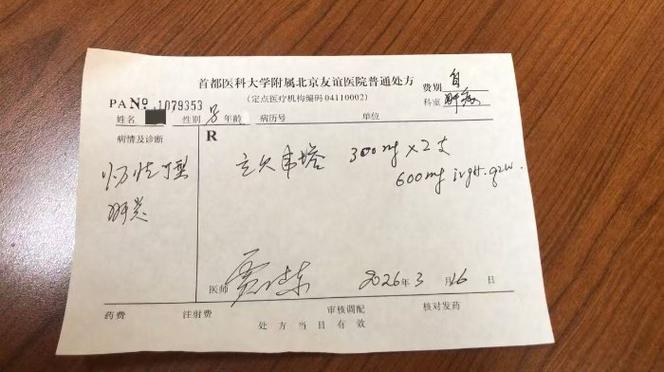 首都医科大学附属北京友谊医院普通处方
(定点医疗机构编码04110002)
费别 自
PA No. 1079353
科室 肝病
姓名 性别 男 年龄 病历号 单位
病情及诊断
R
慢性丁型
肝炎
立贝韦塔 300mg×2支
600mg ivgtt. q2w.
医师
2026年3月16日
药费 注射费 审核调配 核对发药
处方当日有效